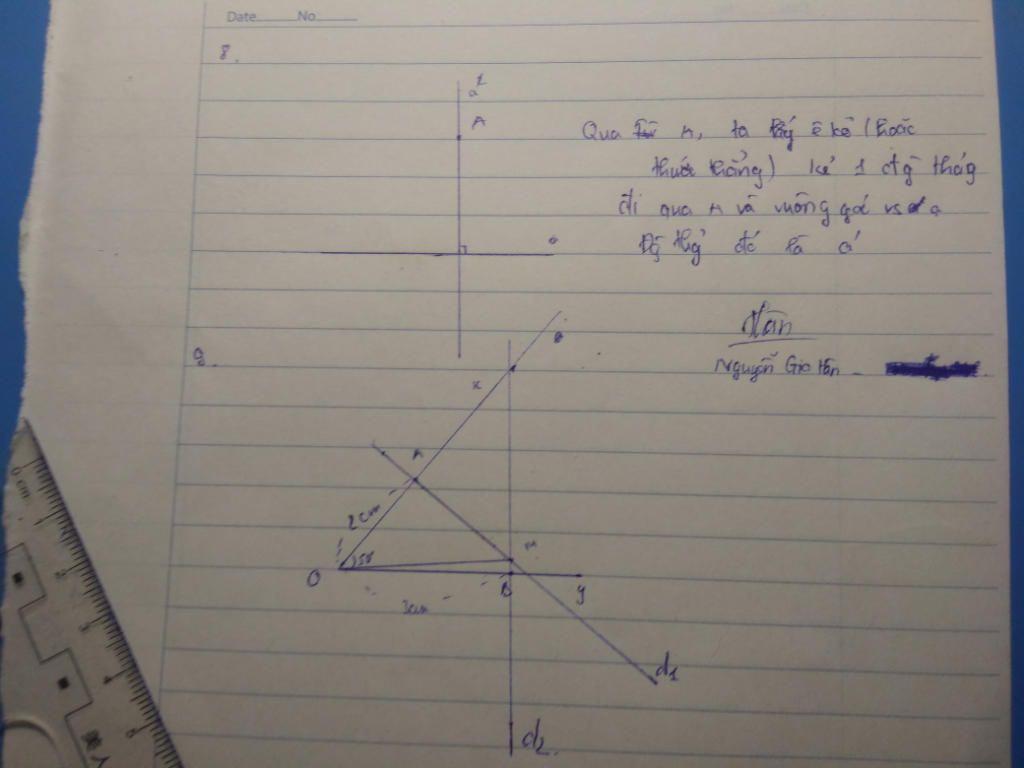 Date No
8.
a'
A
Qua từ A, ta lấy ê ke (hoặc
thước thẳng) kẻ 1 đtg thẳg
đi qua A và vuông góc vs a
a
Đg thg đó là a'
Hân
Nguyễn Gia Hân -
9.
x
A
2cm
50
M
O
B
y
3cm
d1
d2
0 cm